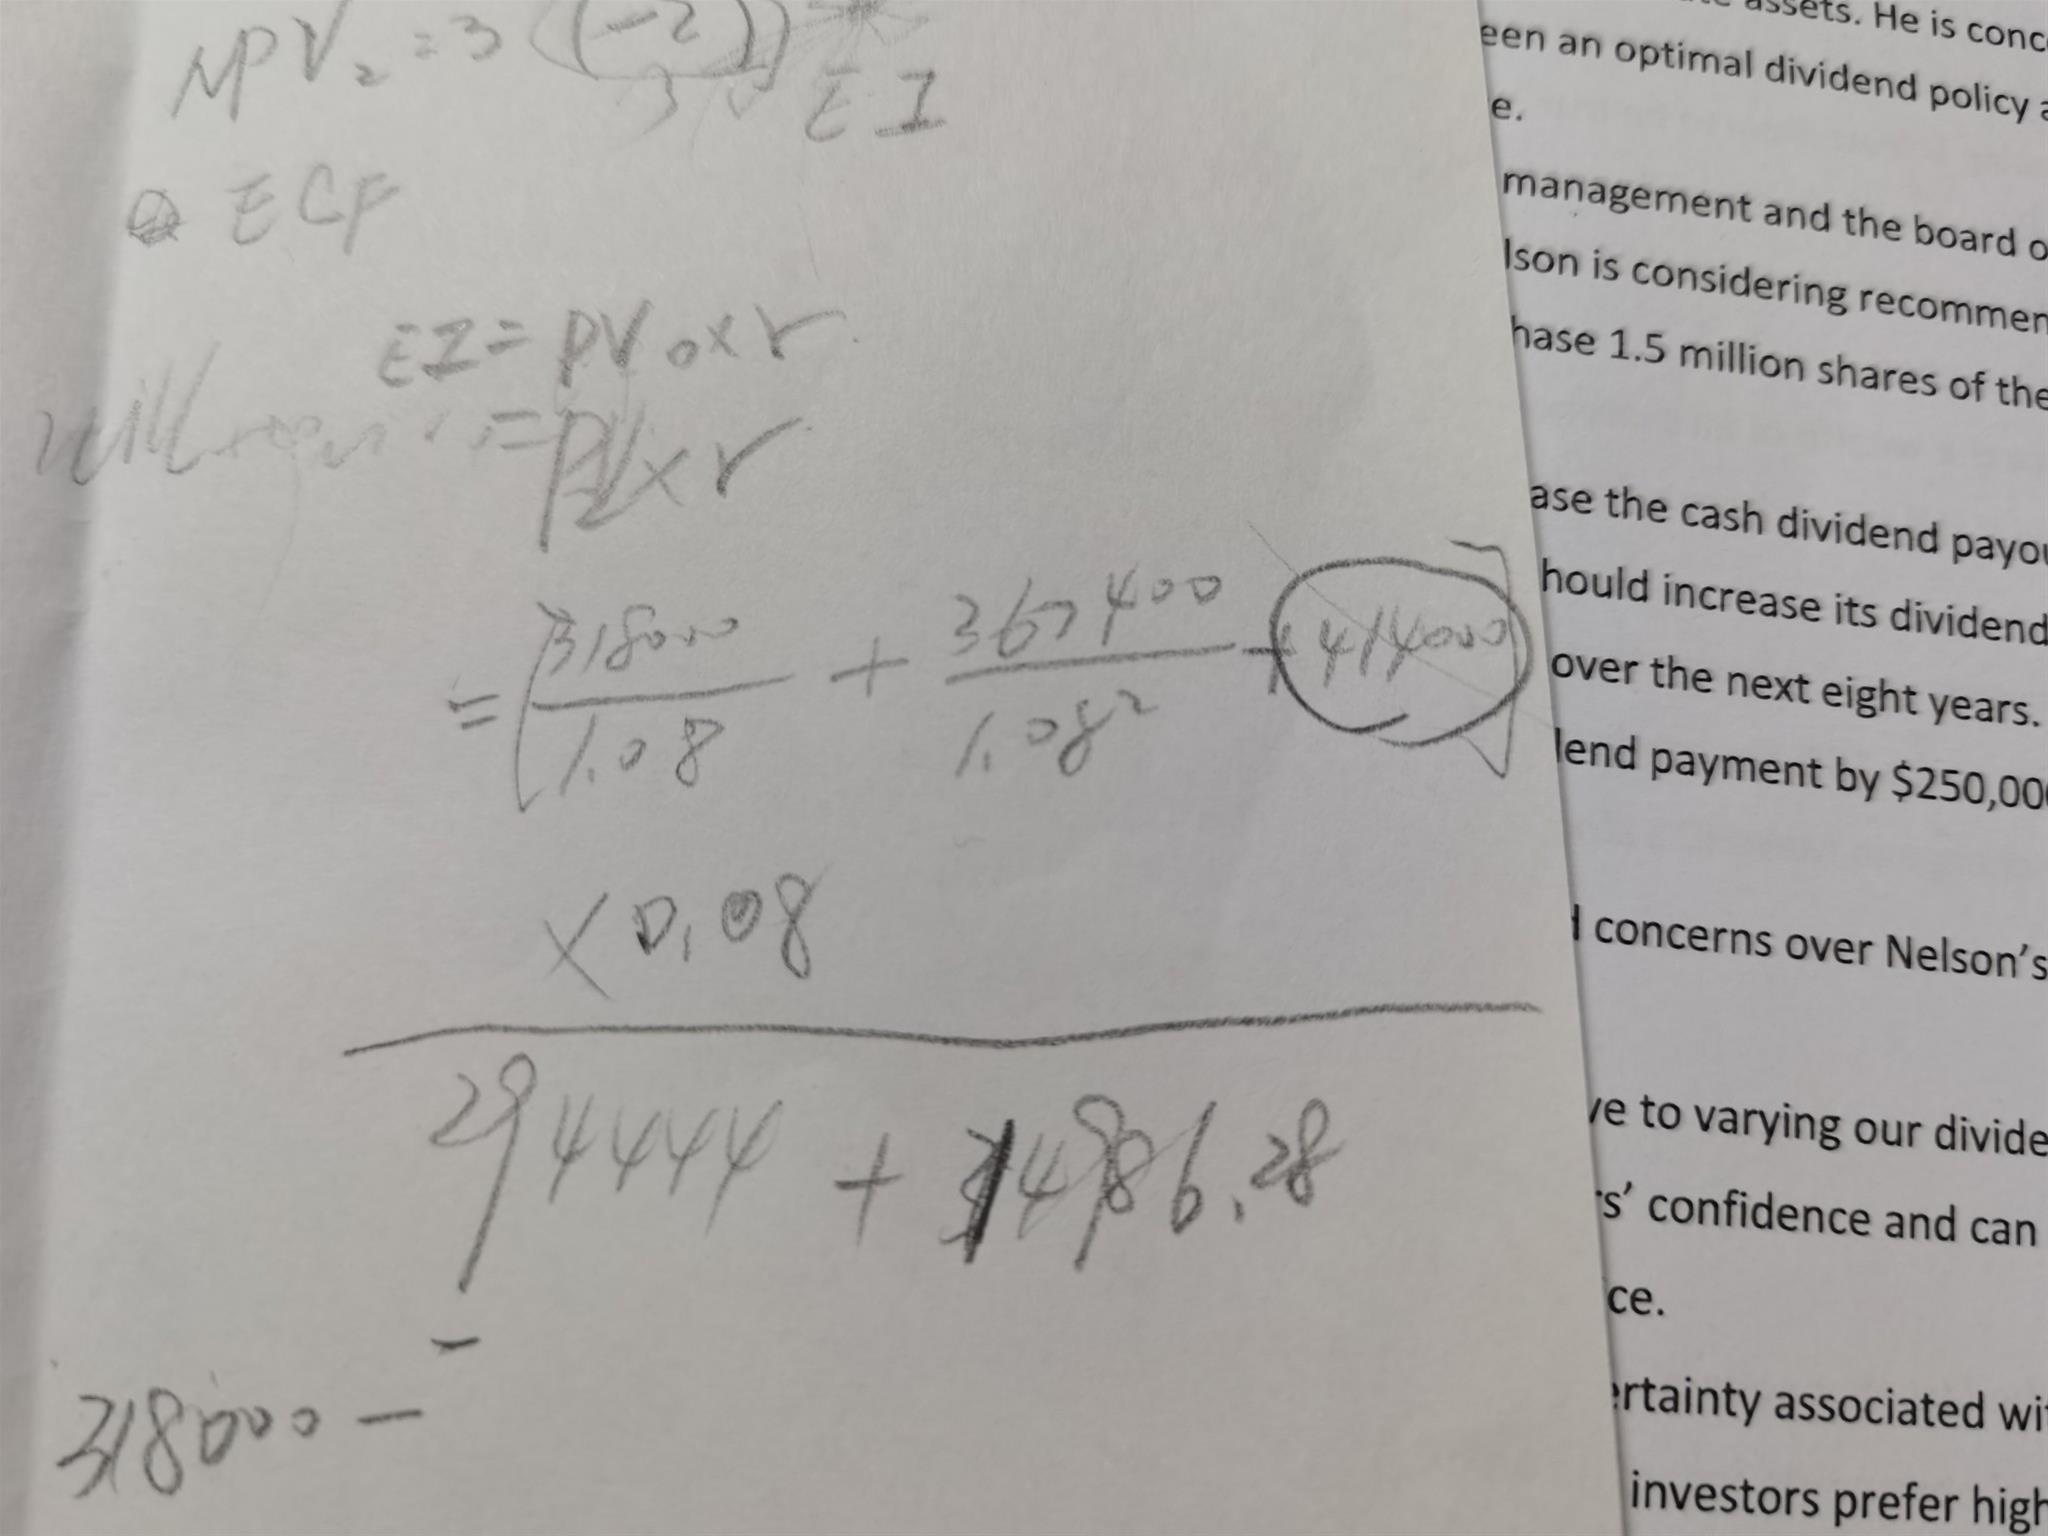 NPV₂ = 3 (-2)
3
EI
ECF
EI = PV₀ × r
= PV × r
= [318000/1.08 + 367400/1.08² + 414000]
× 0.08
294444 + 14986.28
-
318000 -
assets. He is conc
een an optimal dividend policy a
e.
management and the board o
lson is considering recommen
hase 1.5 million shares of the
ase the cash dividend payou
hould increase its dividend
over the next eight years.
lend payment by $250,00
concerns over Nelson's
ve to varying our divide
s' confidence and can
ce.
ertainty associated wi
investors prefer high